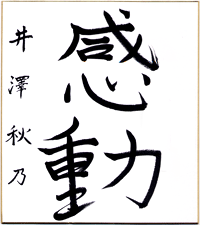 感動
井澤秋乃